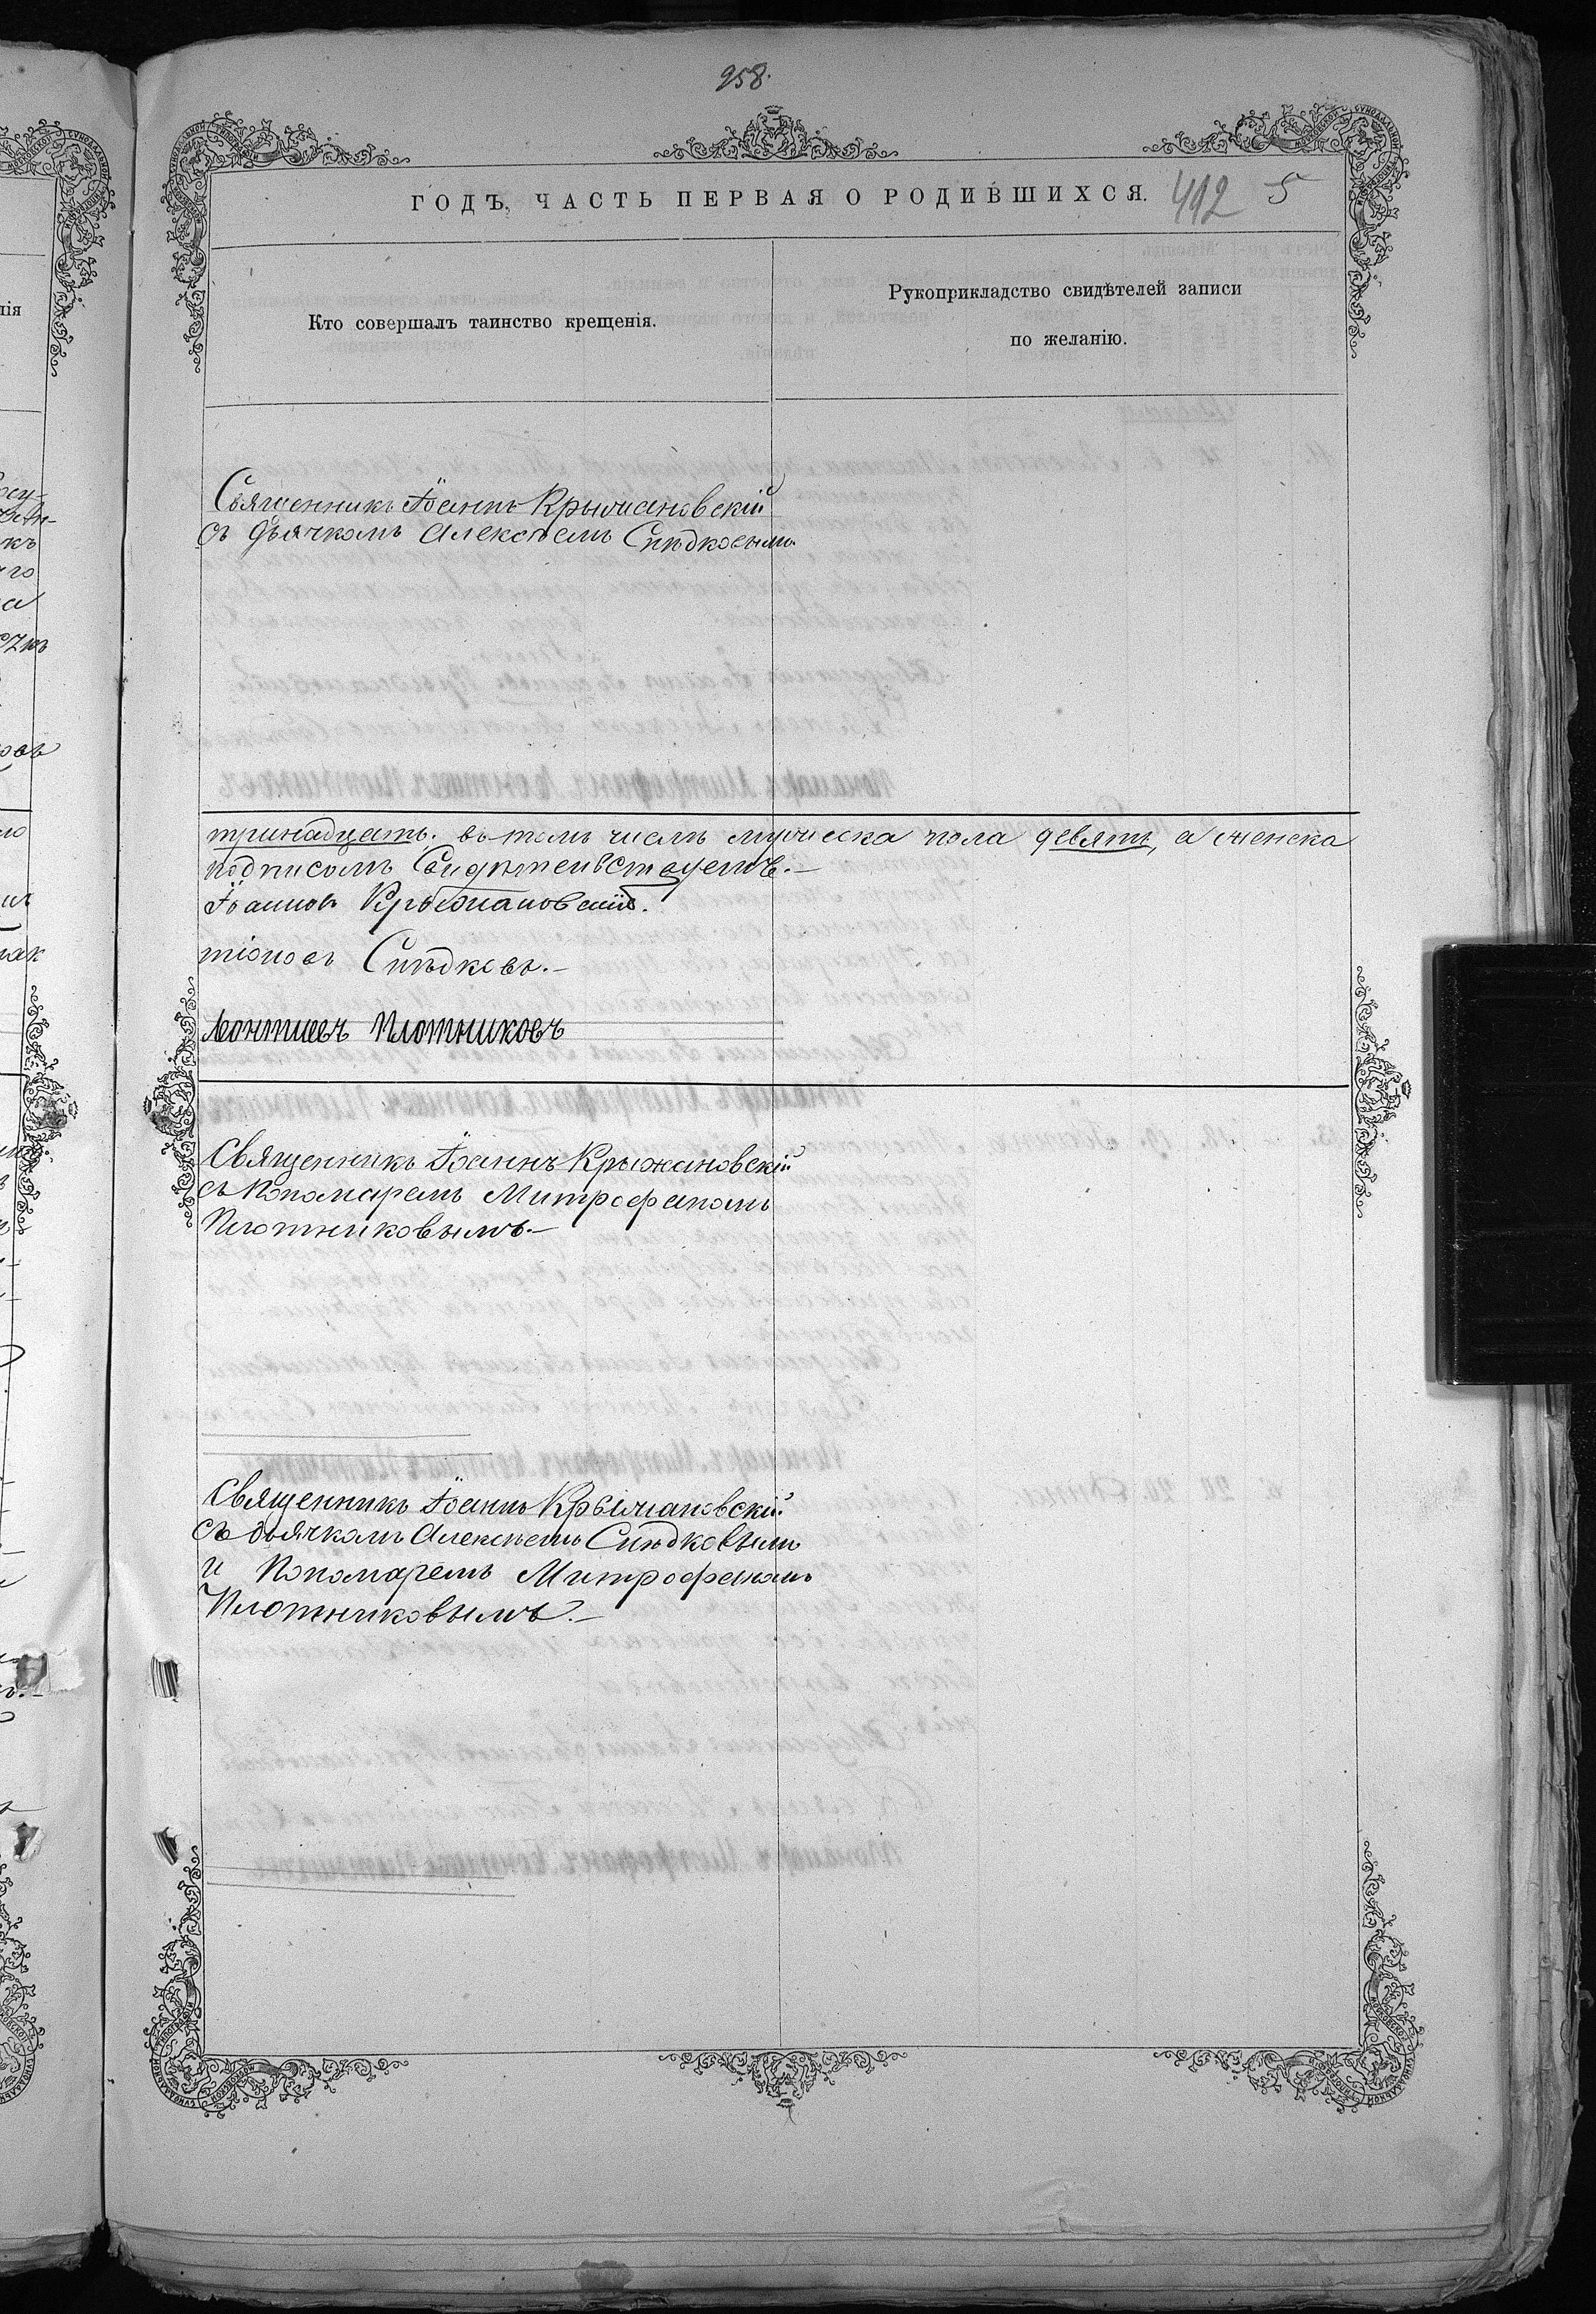 258.
ГОДЪ. ЧАСТЬ ПЕРВАЯ О РОДИВШИХСЯ. 412 5
Кто совершалъ таинство крещенія.
Рукоприкладство свидѣтелей записи
по желанію.
Священникъ Іоаннъ Крыжановскій
съ дьячкомъ Алексѣемъ Снѣдковымъ
тринадцать. въ томъ числѣ мужеска пола девять, а женска
подписомъ Свидѣтельствуемъ.—
Іоанновъ Крыжановскій.
тіоновъ Снѣдковъ.—
Леонтиевъ Плотниковъ
Священникъ Іоаннъ Крыжановскій
съ Пономаремъ Митрофаномъ
Плотниковымъ.—
Священникъ Іоаннъ Крыжановскій
съ дьячкомъ Алексѣемъ Снѣдковымъ
и Пономаремъ Митрофаномъ
Плотниковымъ.—